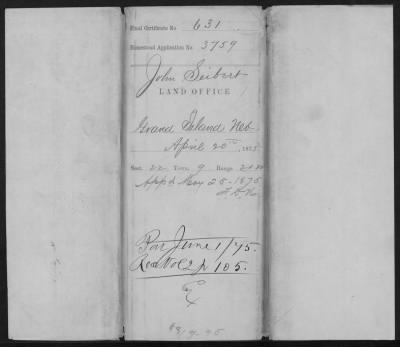 Final Certificate No 631
Homestead Application No 3759
John Seibert
LAND OFFICE
Grand Island Neb
April 20th, 1875
Sect. 22 Town. 9 Range
Appd May 25-1875
Par June 1/75.
Rec Vol 2 p 105.